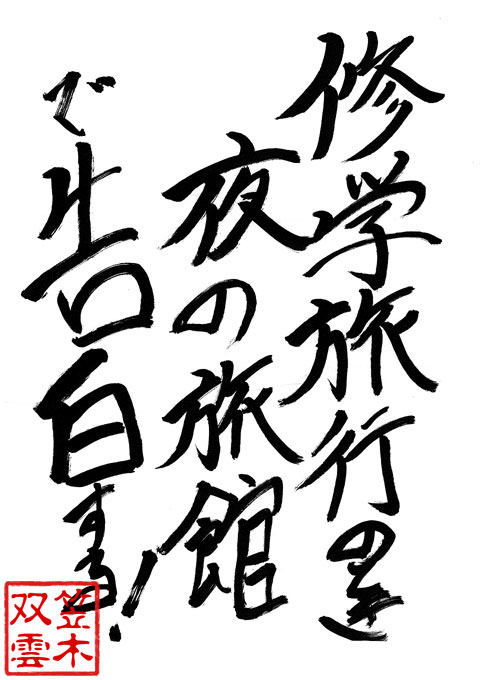 修学旅行の
夜の旅館
で告白する!
笠木
双雲